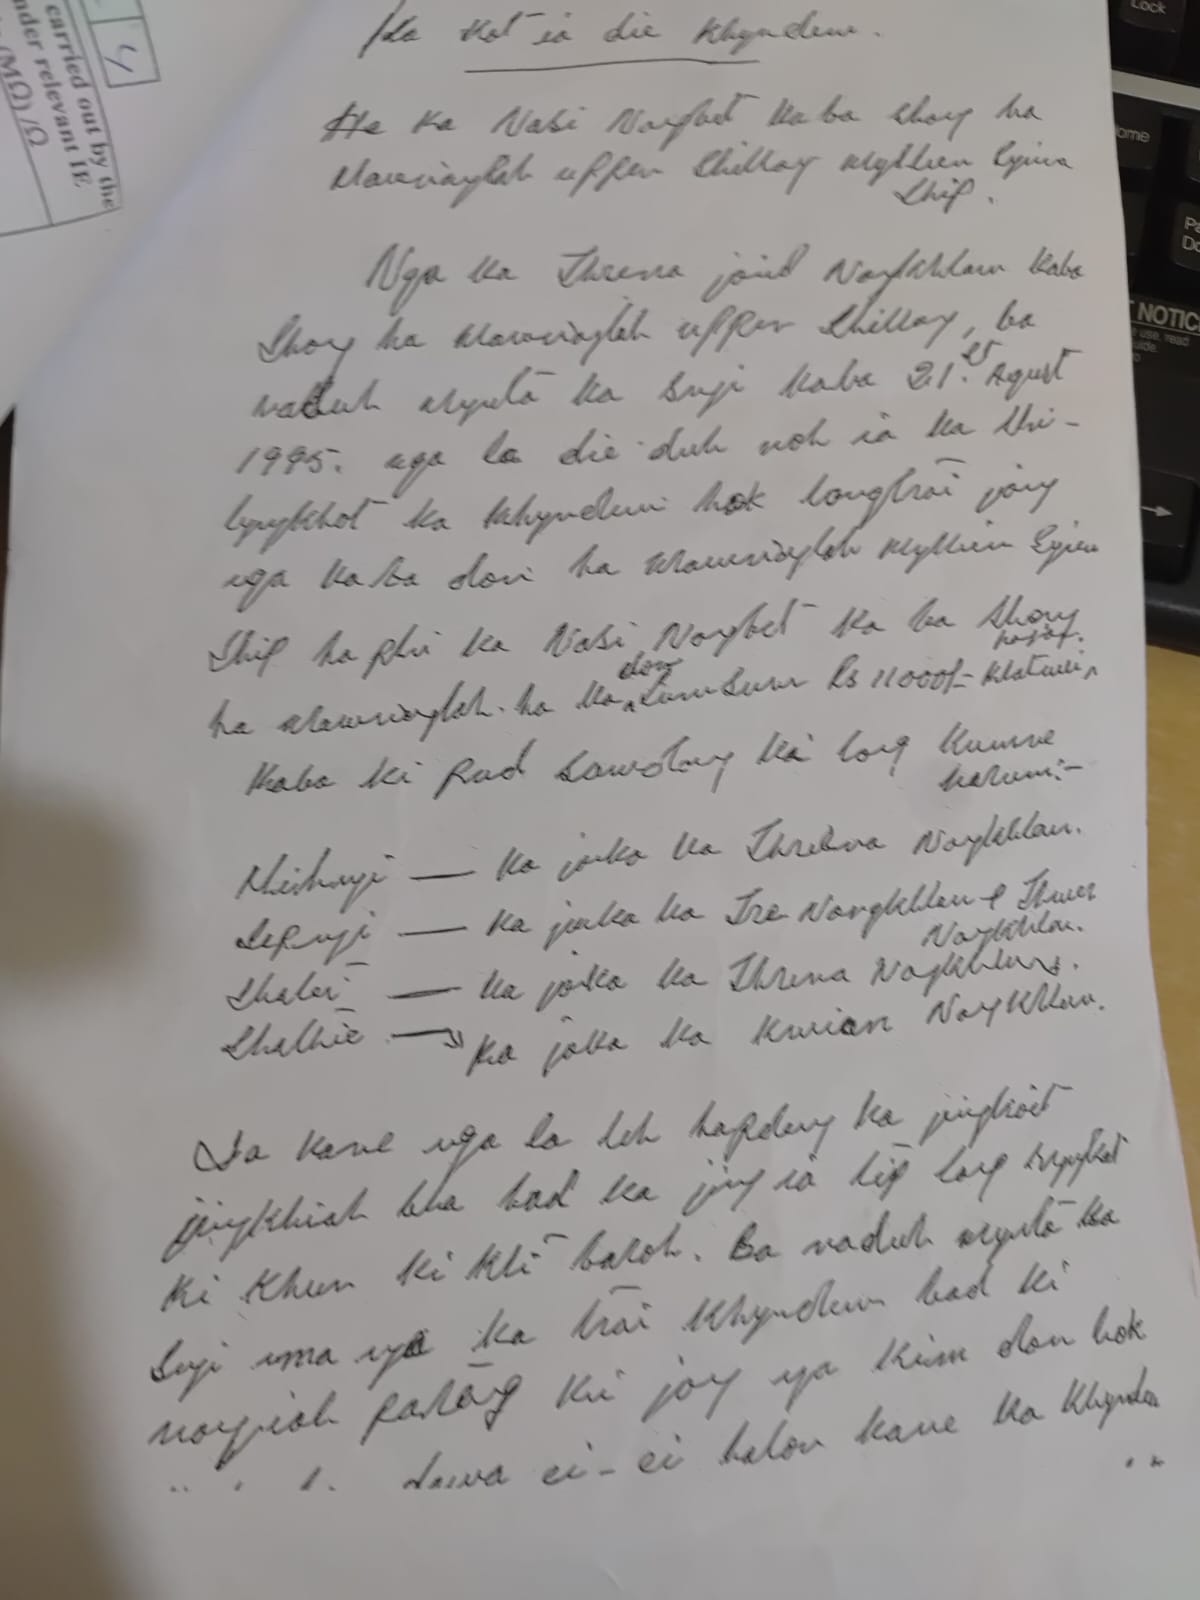 carried out by the
nder relevant IE
(MΩ) /Ω
4
Lock
ome
NOTIC
use, read
uide.
Ka Kot ia die Khyndew.
Ha Ka Nasi Nongbet kaba shong ha
Mawrianglah upper Shillong Mylliem Syiem
Ship.
Nga ka Threna jaid Nongkhlaw kaba
Shong ha Mawrianglah upper Shillong, ba
naduh mynta ka sngi kaba 21st Agust
1995. nga la die duh noh ia ka shi-
lyngkhot ka khyndew hok longtrai jong
nga kaba don ha Mawrianglah Mylliem Syiem
Ship ha phi ka Nasi Nongbet ka ba shong
ha Mawrianglah. ha ka dor Lumsum Rs 11000/-
Kaba ki pud sawdong ka long kumne
harum:-
Mihngi — ka jaka ka Threina Nongkhlaw.
Sepngi — ka jaka ka Tre Nongkhlaw &
Nongkhlaw.
Shatei — ka jaka ka Threna Nongkhlaw.
Shathie → ka jaka ka Kwian Nongkhlaw.
Ia kane nga la leh hapdeng ka jingkoit
jingkhiah bha bad ka jing ia tip lang
ki khun ki kti baroh. Ba naduh mynta ka
sngi uma nga ka trai khyndew bad ki
nongiah pateng kii jong nga kim don hok
dawa ei-ei halor kane ka khyndew